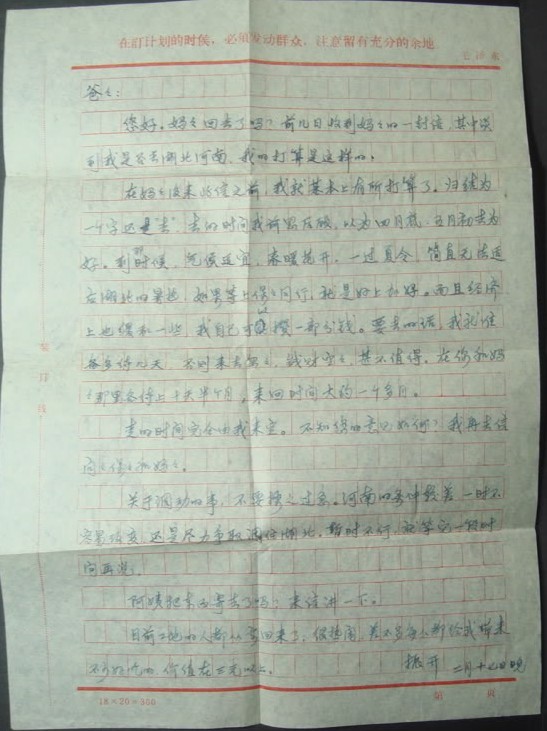 在订计划的时候，必须发动群众，注意留有充分的余地。
毛泽东
爸々：
您好。妈々回去了吗？前几日收到妈々的一封信，其中谈
到我是否去湖北河南，我的打算是这样的。
在妈々没来此信之前，我就基本上有所打算了。归结为
一个字还是“去”，去的时间我前思后顾，以为四月底、五月初去为
好。到那时候，气候适宜，春暖花开，一过夏令，简直无法适
应湖北的暑热，如果等上保々同行，就是好上加好。而且经济
上也缓和一些，我自己可以攒一部分钱。要去的话，我就住
各多待几天，不时来去，钱财，某不值得。在你和妈
々那里各待上十天半个月，来回时间大约一个多月。
走的时间完全由我来定。不知您的意见如何？我再去信
问々保々和妈々。
关于调动的事，不要操之过急。河南的条件较差，一时不
容易改变，还是尽力争取调往湖北，暂时不行，就等它一段时
间再说。
阿姨把东西寄去了吗？来信讲一下。
目前工地的人都回来了，很热闹，差不多每人都给我带来
不少好吃的，价值在三元以上。
振开 二月十七日晚
装订线
18×20=360
第 页